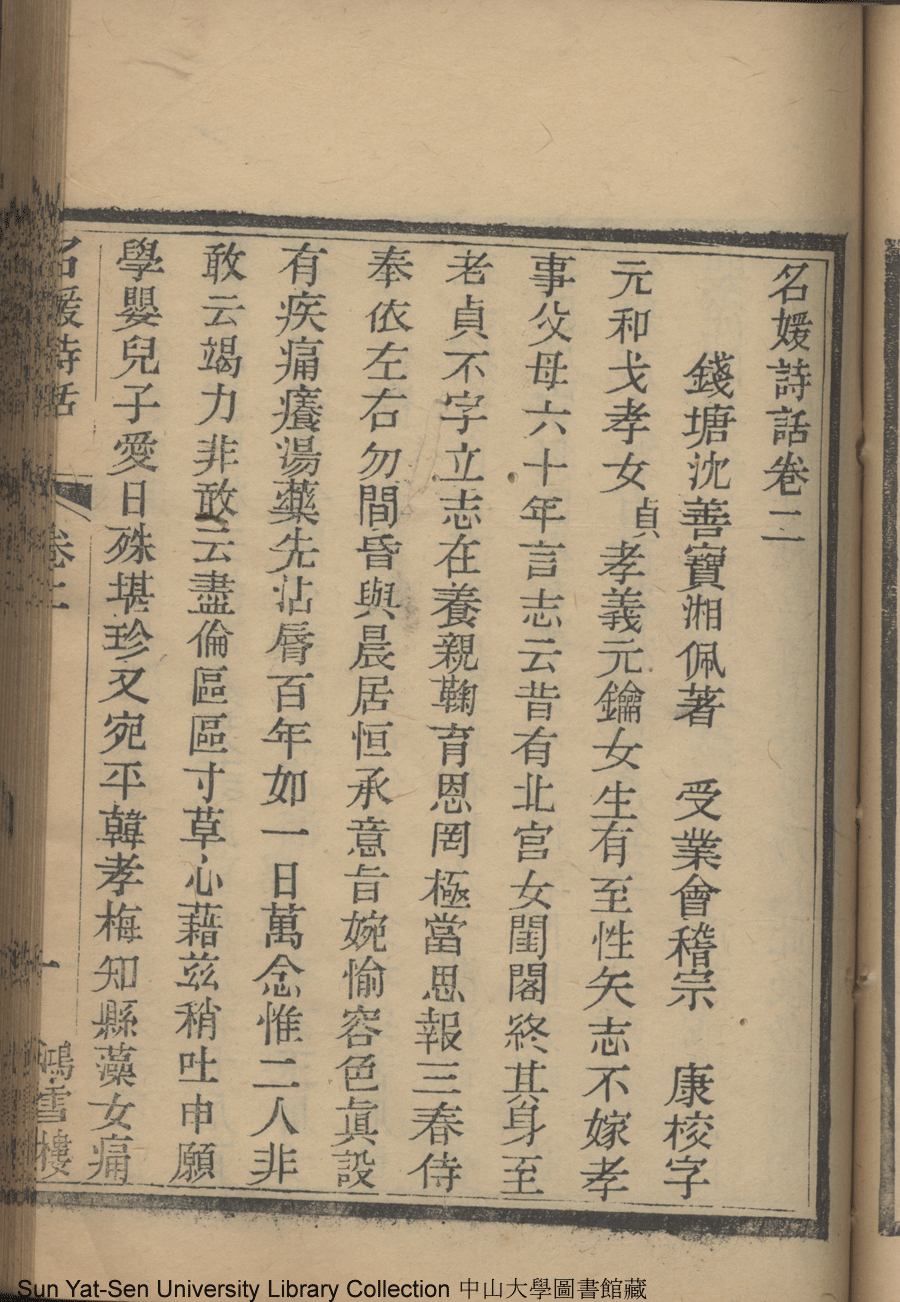 名媛詩話卷二
錢塘沈善寶湘佩著　受業會稽宗　康校字
元和戈孝女貞孝義元鑰女生有至性矢志不嫁孝
事父母六十年言志云昔有北宮女閨閣終其身至
老貞不字立志在養親鞠育恩罔極當思報三春侍
奉依左右勿間昏與晨居恒承意旨婉愉容色眞設
有疾痛癢湯藥先沾脣百年如一日萬念惟二人非
敢云竭力非敢云盡倫區區寸草心藉茲稍吐申願
學嬰兒子愛日殊堪珍又宛平韓孝梅知縣藻女痛
名媛詩話　卷二　一　鴻雪樓
Sun Yat-Sen University Library Collection 中山大學圖書館藏